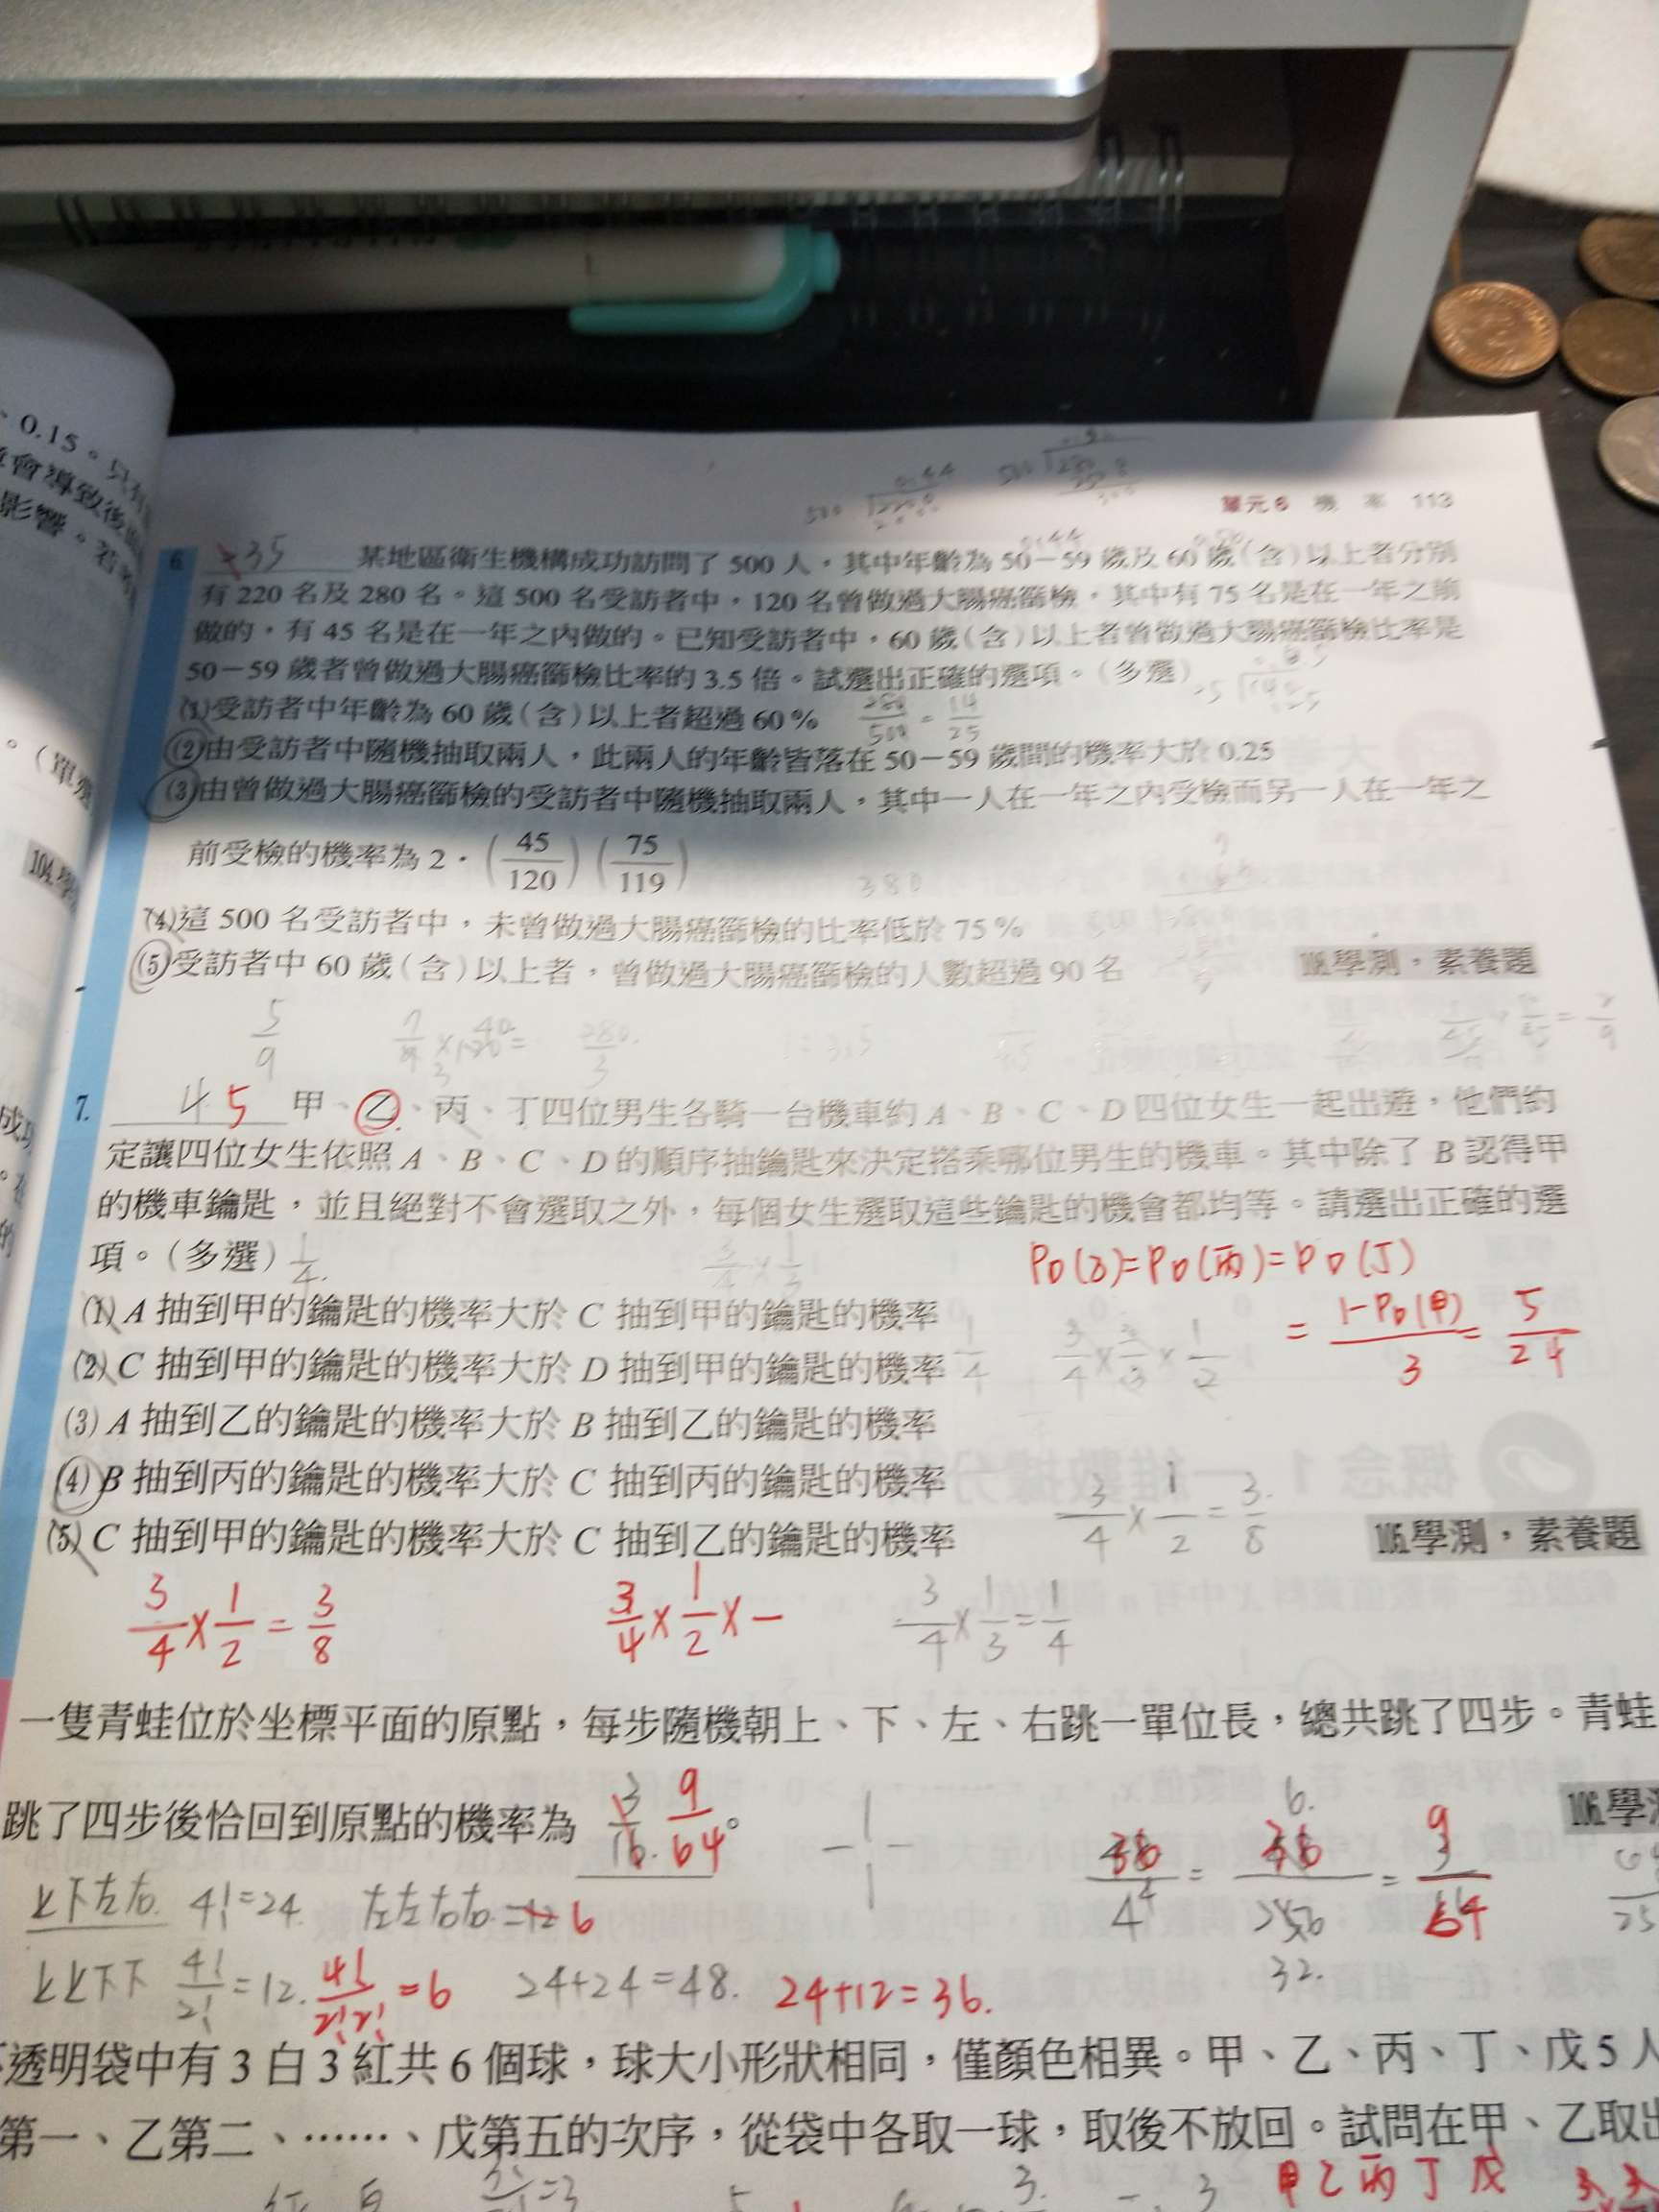 0.15。只有
會導致後
影響。若
。(單選
104.學
單元 6 機 率 113
6. 35 某地區衛生機構成功訪問了 500 人,其中年齡為 50-59 歲及 60 歲(含)以上者分別
有 220 名及 280 名。這 500 名受訪者中,120 名曾做過大腸癌篩檢,其中有 75 名是在一年之前
做的,有 45 名是在一年之內做的。已知受訪者中,60 歲(含)以上者曾做過大腸癌篩檢比率是
50-59 歲者曾做過大腸癌篩檢比率的 3.5 倍。試選出正確的選項。(多選)
(1)受訪者中年齡為 60 歲(含)以上者超過 60% 280/500 = 14/25
(2)由受訪者中隨機抽取兩人,此兩人的年齡皆落在 50-59 歲間的機率大於 0.25
(3)由曾做過大腸癌篩檢的受訪者中隨機抽取兩人,其中一人在一年之內受檢而另一人在一年之
前受檢的機率為 2·(45/120)(75/119)
380
(4)這 500 名受訪者中,未曾做過大腸癌篩檢的比率低於 75%
(5)受訪者中 60 歲(含)以上者,曾做過大腸癌篩檢的人數超過 90 名 108.學測,素養題
5/9 7/9 × 120 = 280/3 1:3.5
7. 45 甲、乙、丙、丁四位男生各騎一台機車約 A、B、C、D 四位女生一起出遊,他們約
定讓四位女生依照 A、B、C、D 的順序抽鑰匙來決定搭乘哪位男生的機車。其中除了 B 認得甲
的機車鑰匙,並且絕對不會選取之外,每個女生選取這些鑰匙的機會都均等。請選出正確的選
項。(多選) 1/4 3/4 × 1/3 PD(乙)=PD(丙)=PD(丁)
= 1-PD(甲)/3 = 5/24
(1) A 抽到甲的鑰匙的機率大於 C 抽到甲的鑰匙的機率
(2) C 抽到甲的鑰匙的機率大於 D 抽到甲的鑰匙的機率 1/4 3/4 × 2/3 × 1/2
(3) A 抽到乙的鑰匙的機率大於 B 抽到乙的鑰匙的機率
(4) B 抽到丙的鑰匙的機率大於 C 抽到丙的鑰匙的機率 3/4 × 1/2 = 3/8
(5) C 抽到甲的鑰匙的機率大於 C 抽到乙的鑰匙的機率 105.學測,素養題
3/4 × 1/2 = 3/8 3/4 × 1/2 × 3/4 × 1/3 = 1/4
一隻青蛙位於坐標平面的原點,每步隨機朝上、下、左、右跳一單位長,總共跳了四步。青蛙
跳了四步後恰回到原點的機率為 3/16. 9/64。 36/4^4 = 36/256 = 9/64 106.學
上下左右 4!=24 左左右右=12 6
上上下下 4!/2!=12. 4!/2!2! =6 24+24=48. 24+12=36. 32.
透明袋中有 3 白 3 紅共 6 個球,球大小形狀相同,僅顏色相異。甲、乙、丙、丁、戊 5 人
第一、乙第二、……、戊第五的次序,從袋中各取一球,取後不放回。試問在甲、乙取出
甲乙丙丁戊